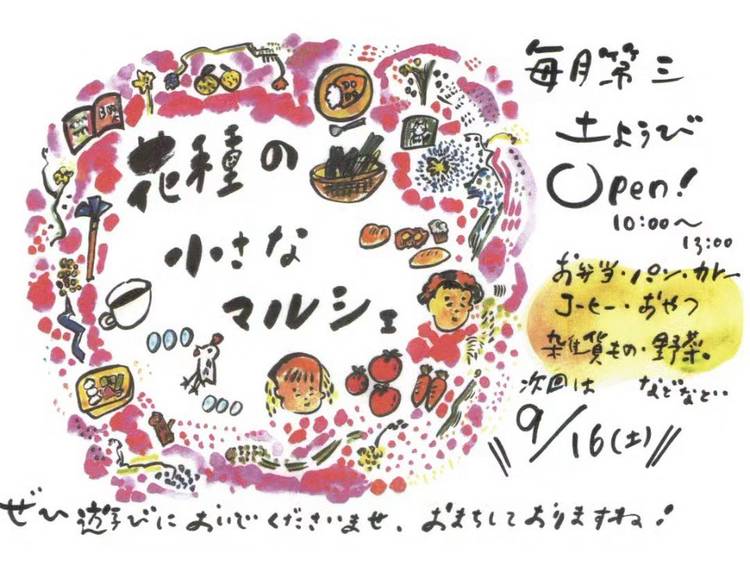 花種の
小さな
マルシェ
毎月第三
土ようび
Open!
10:00～
13:00
お弁当・パン・カレー
コーヒー・おやつ
雑貨もの・野菜。
などなど…
次回は
9/16(土)
ぜひ遊びにおいでくださいませ、おまちしておりますね！